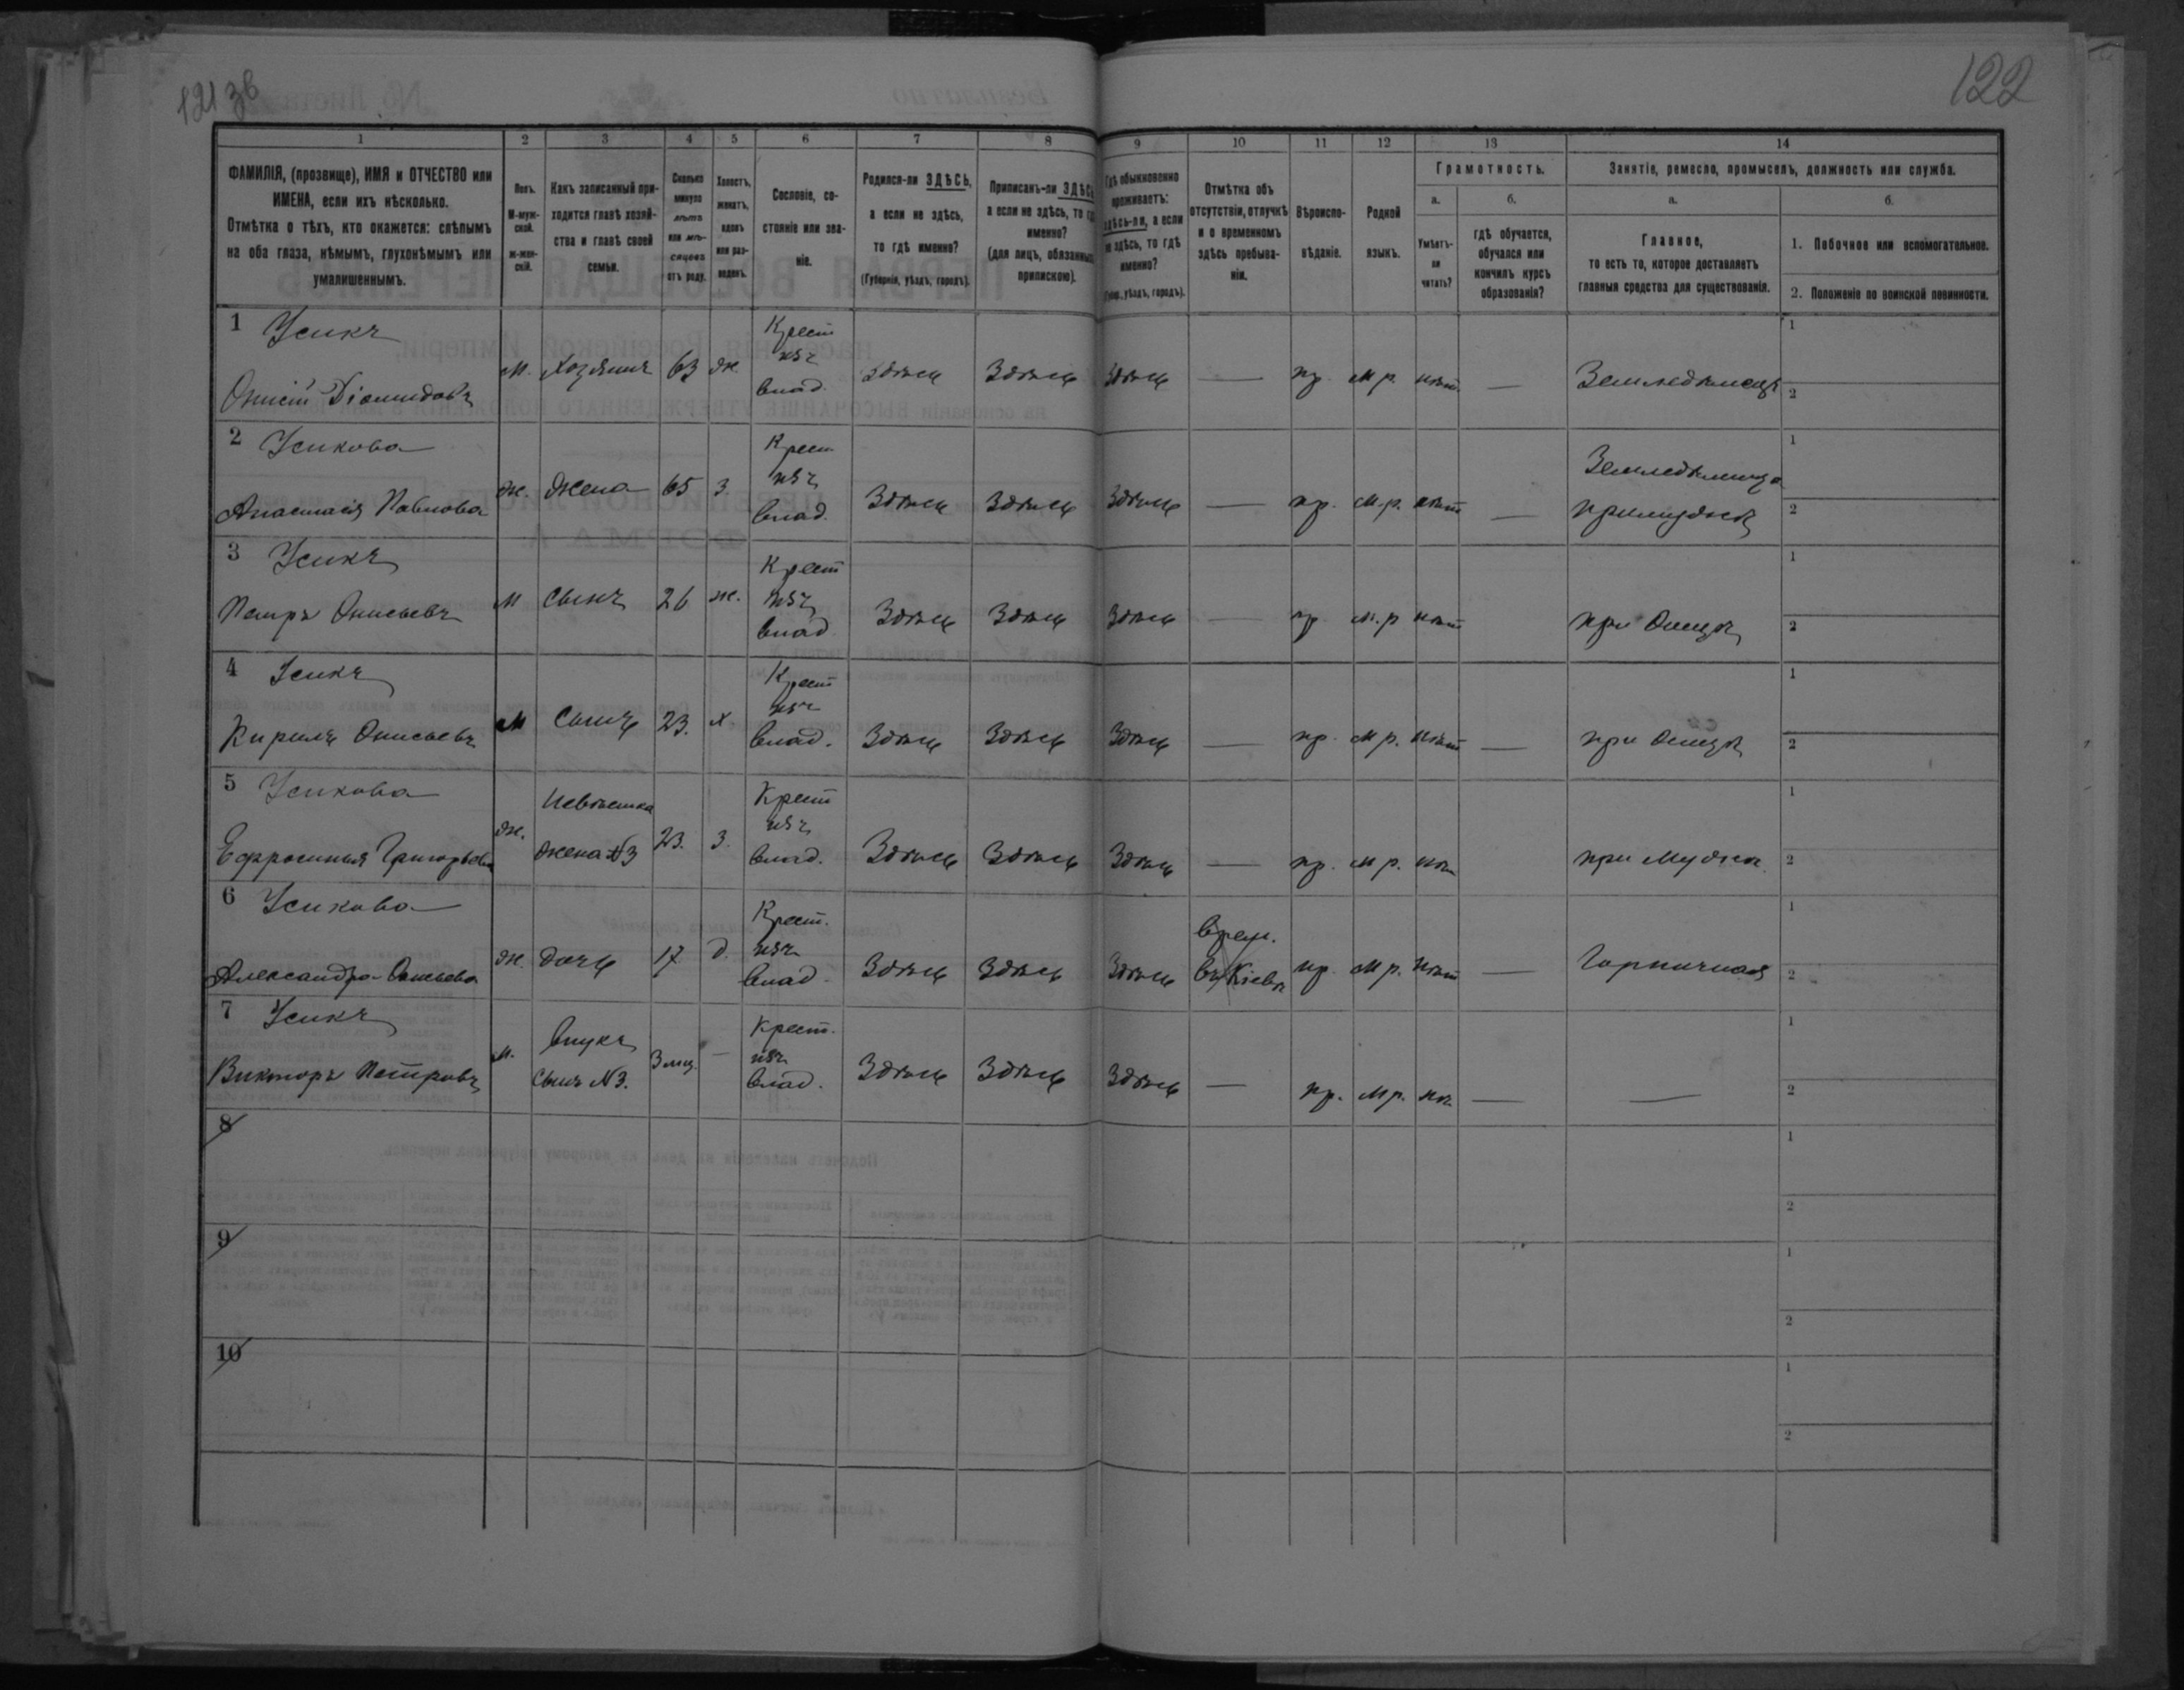 121 зв
122
1 2 3 4 5 6 7 8 9 10 11 12 13 14
ФАМИЛІЯ, (прозвище), ИМЯ и ОТЧЕСТВО или
ИМЕНА, если ихъ нѣсколько.
Отмѣтка о тѣхъ, кто окажется: слѣпымъ
на оба глаза, нѣмымъ, глухонѣмымъ или
умалишеннымъ.
Полъ.
М-муж-
ской.
ж-жен-
скій.
Какъ записанный при-
ходится главѣ хозяй-
ства и главѣ своей
семьи.
Сколько
минуло
лѣтъ
или мѣ-
сяцевъ
отъ роду.
Холостъ,
женатъ,
вдовъ
или раз-
веденъ.
Сословіе, со-
стояніе или зва-
ніе.
Родился-ли ЗДѢСЬ,
а если не здѣсь,
то гдѣ именно?
(Губернія, уѣздъ, городъ).
Приписанъ-ли ЗДѢСЬ
а если не здѣсь, то гдѣ
именно?
(для лицъ, обязанныхъ
припискою).
Гдѣ обыкновенно
проживаетъ:
здѣсь-ли, а если
не здѣсь, то гдѣ
именно?
(Губер., уѣздъ, городъ).
Отмѣтка объ
отсутствіи, отлучкѣ
и о временномъ
здѣсь пребыва-
ніи.
Вѣроиспо-
вѣданіе.
Родной
языкъ.
Грамотность.
а.
Умѣетъ-
ли
читать?
б.
гдѣ обучается,
обучался или
кончилъ курсъ
образованія?
Занятіе, ремесло, промыселъ, должность или служба.
а.
Главное,
то есть то, которое доставляетъ
главныя средства для существованія.
б.
1. Побочное или вспомогательное.
2. Положеніе по воинской повинности.
1 Усикъ Крест 1
Онисій Діомидовъ м. Хозяинъ 63 ж. изъ влад. Здѣсь Здѣсь Здѣсь — пр. м р. нѣт — Земледѣлецъ 2
2 Усикова Крест Земледѣлица 1
Анастасія Павлова ж. жена 65 з. изъ влад. Здѣсь Здѣсь Здѣсь — пр. м.р. нѣт — примужѣ 2
3 Усикъ Крест 1
Петръ Онисьевъ м сынъ 26 ж. изъ влад Здѣсь Здѣсь Здѣсь — пр м.р нѣт при Отцѣ 2
4 Усикъ Крест 1
Кирилъ Онисьевъ м Сынъ 23. х изъ влад. Здѣсь Здѣсь Здѣсь — пр. м р. нѣт — при Отцѣ 2
5 Усикова Невѣстка Крест 1
Ефросинья Григорьева ж. жена №3 23. з. изъ влад. Здѣсь Здѣсь Здѣсь — пр. м р. нѣт при Мужѣ 2
6 Усикова Крест. Врем. 1
Александра Онисьева ж. дочь 17 д. изъ влад. Здѣсь Здѣсь Здѣсь въ Кіевѣ пр. м р. нѣт — Горничная 2
7 Усикъ Внукъ Крест. 1
Викторъ Петровъ м. Сынъ №3. 3 мц. — изъ влад. Здѣсь Здѣсь Здѣсь — пр. м р. нѣ. — — 2
8 1
2
9 1
2
10 1
2